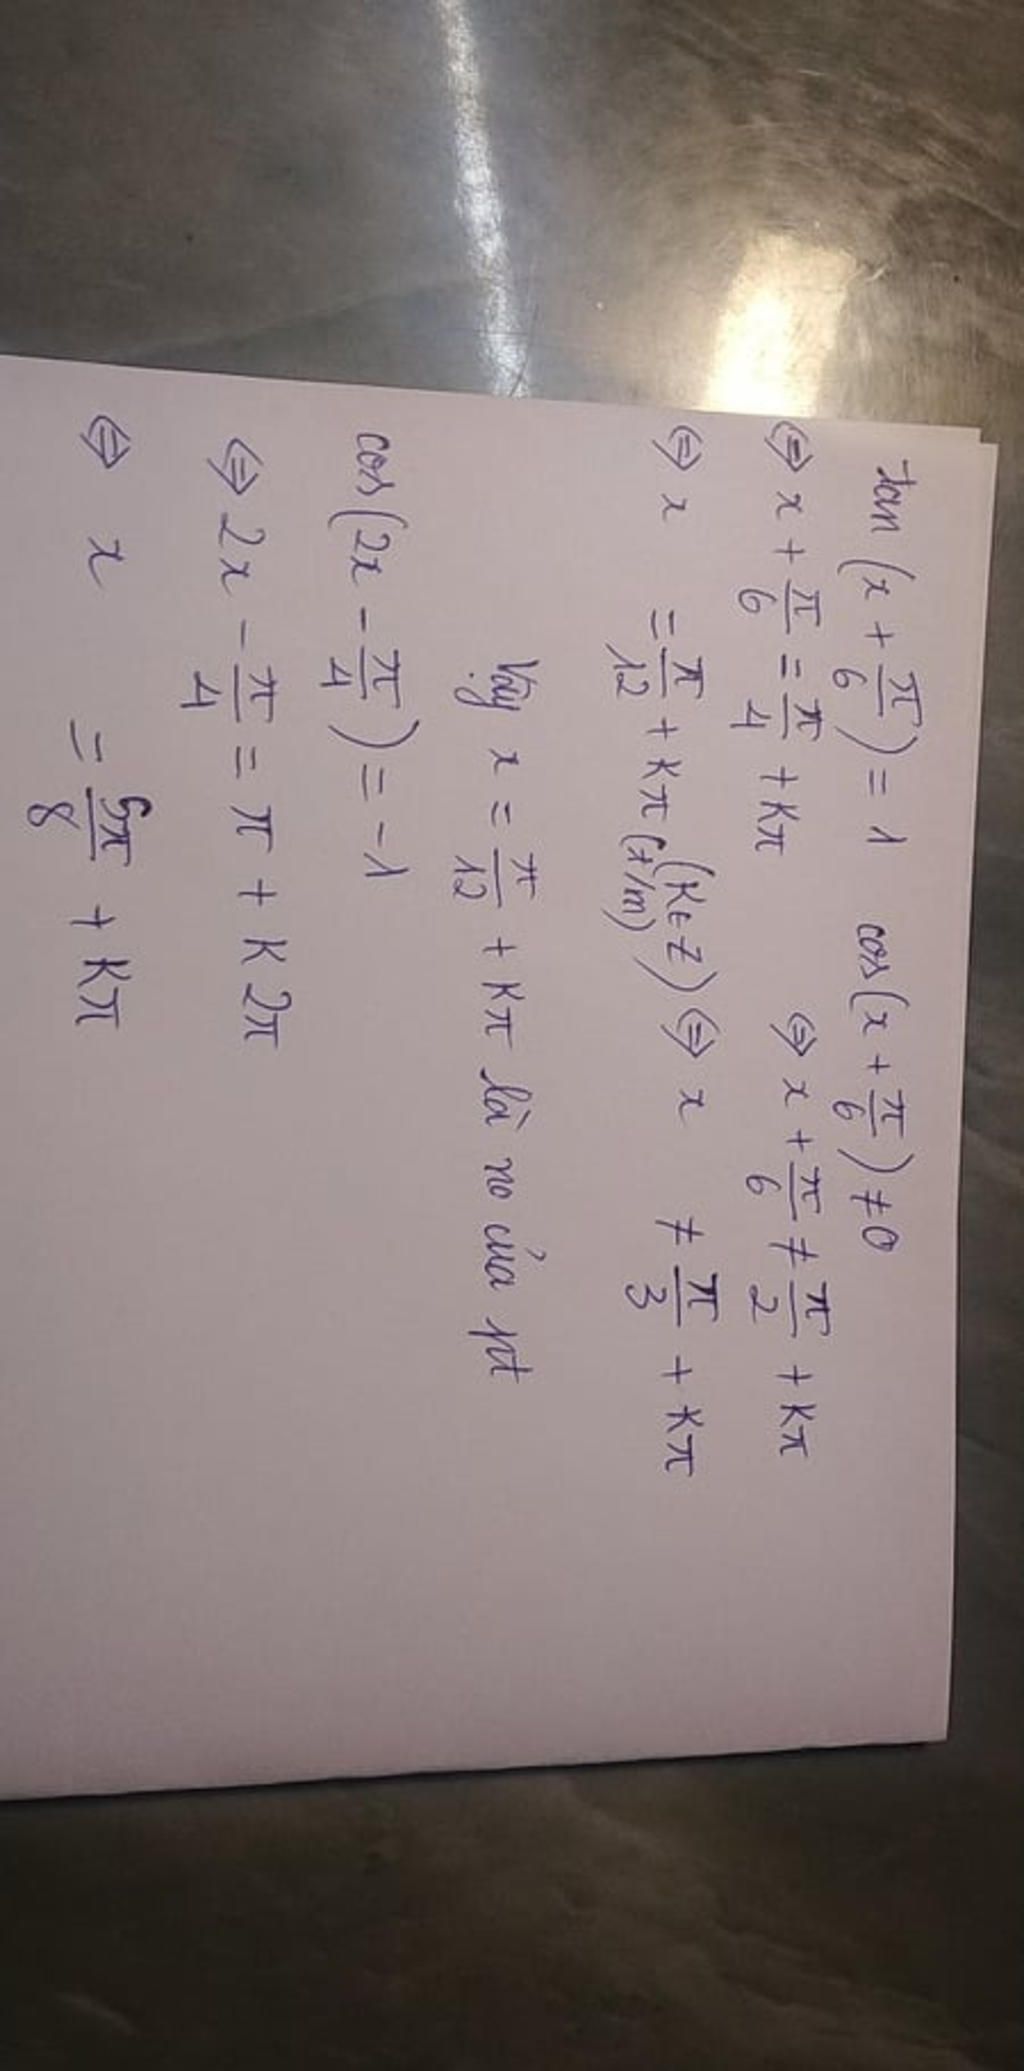 tan (x + π/6) = 1 cos(x + π/6) ≠ 0
⇔ x + π/6 = π/4 + kπ ⇔ x + π/6 ≠ π/2 + kπ
⇔ x = π/12 + kπ (k∈Z) (t/m) ⇔ x ≠ π/3 + kπ
Vậy x = π/12 + kπ là no của pt
cos(2x - π/4) = -1
⇔ 2x - π/4 = π + k2π
⇔ x = 5π/8 + kπ